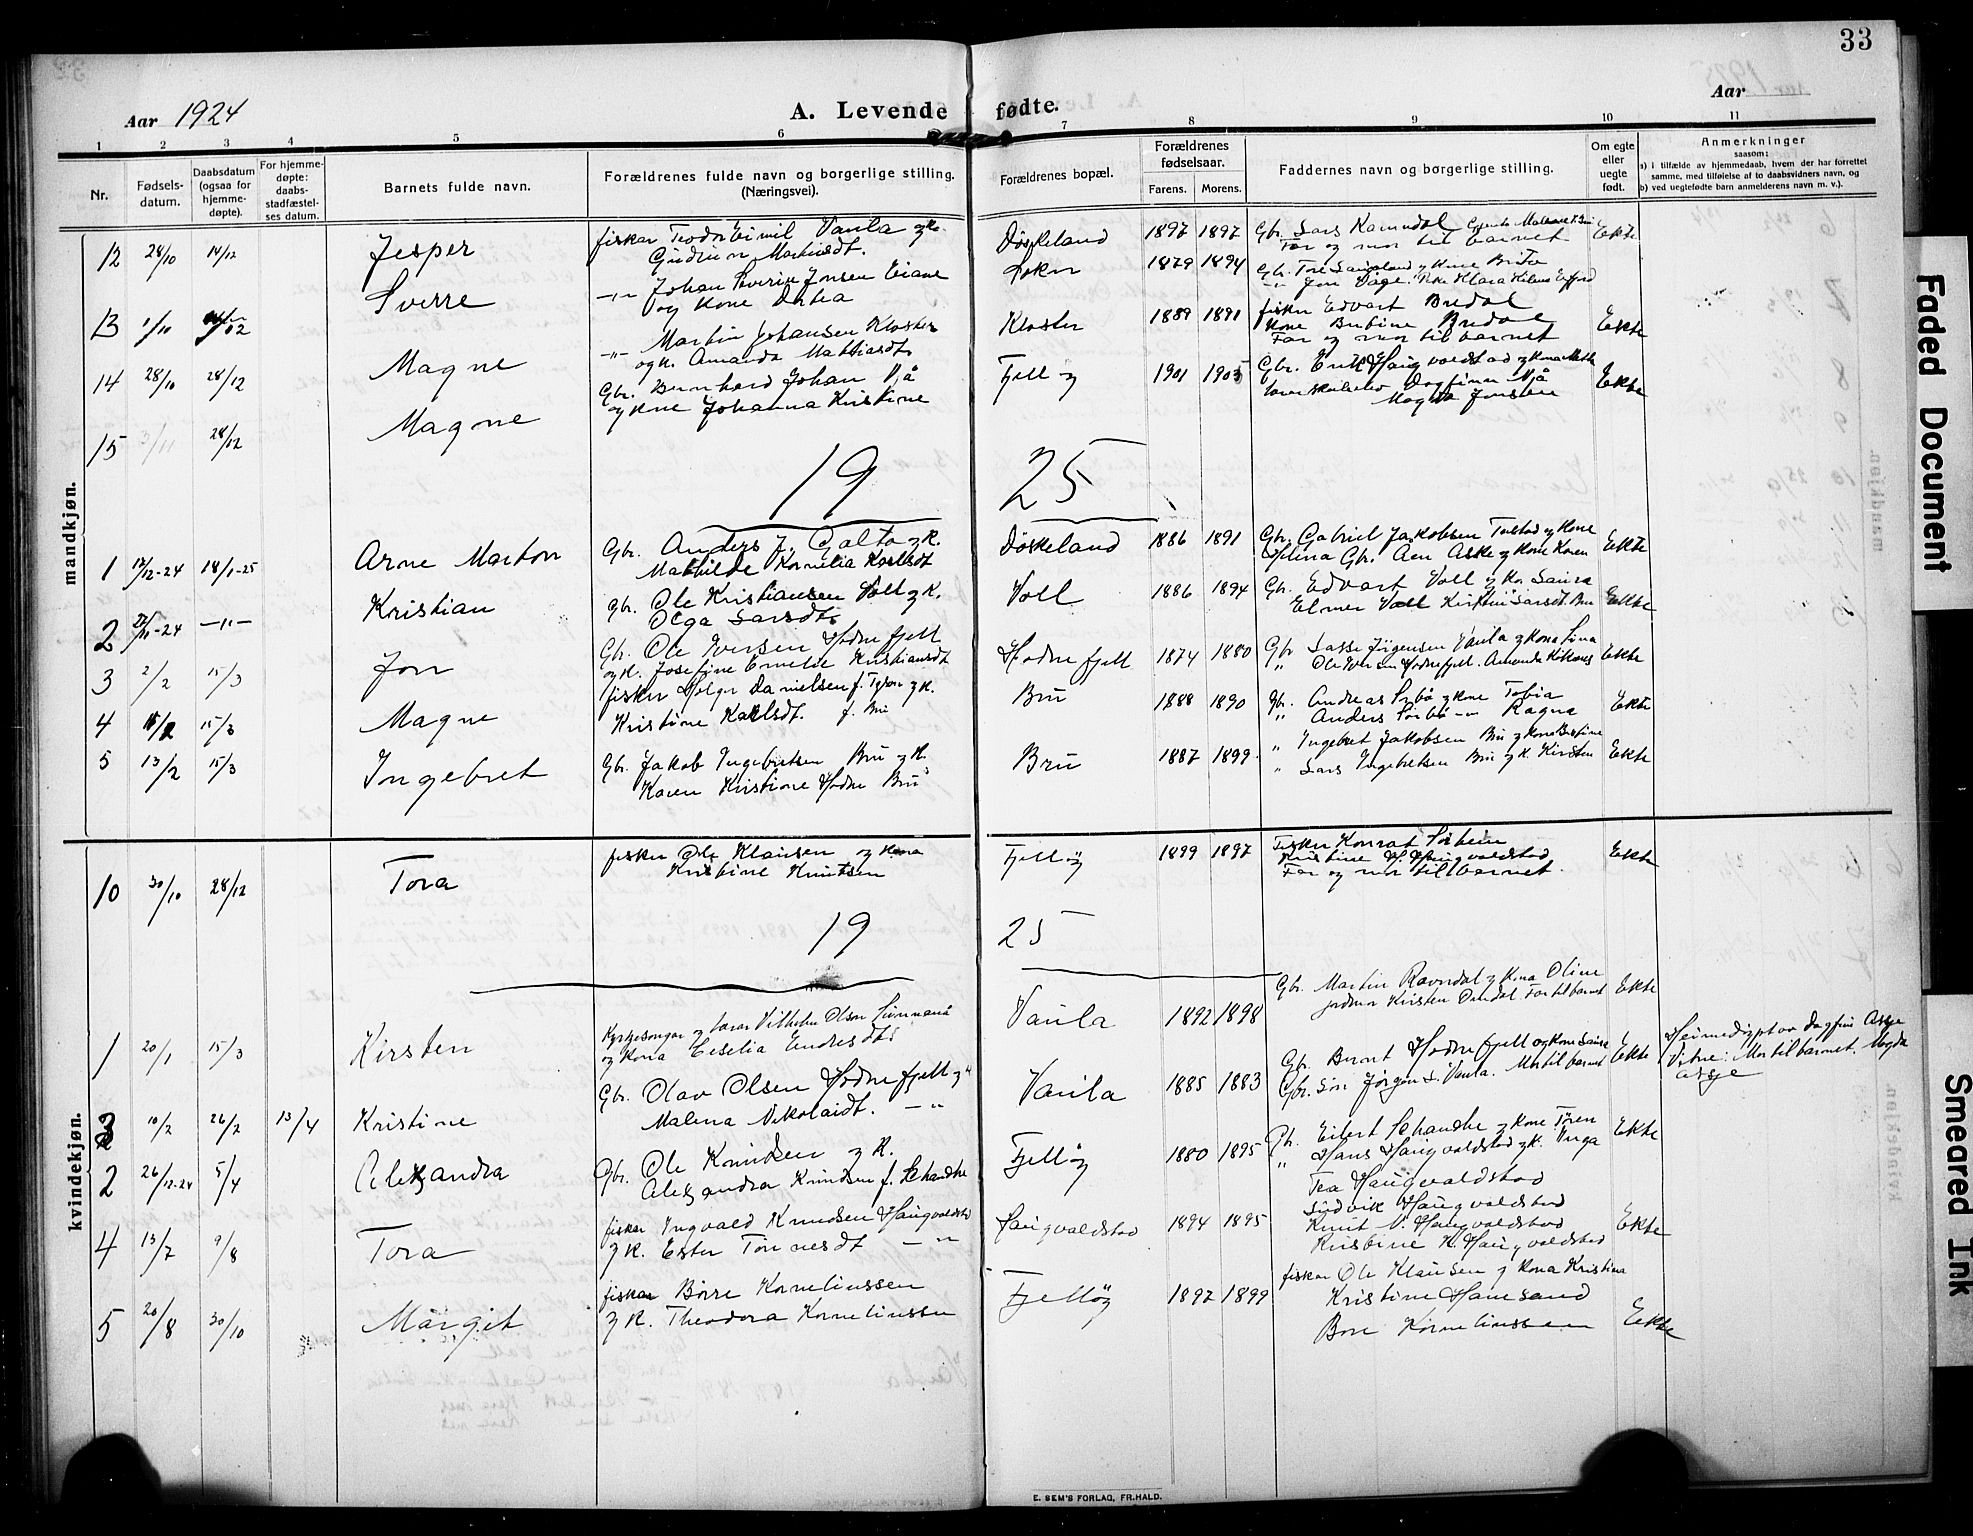 33
Aar 1924
A. Levende fødte.
Aar
1 2 3 4 5 6 7 8 9 10 11
Nr.
Fødsels-
datum.
Daabsdatum
(ogsaa for
hjemme-
døpte).
For hjemme-
døpte:
daabs-
stadfæstel-
ses datum.
Barnets fulde navn.
Forældrenes fulde navn og borgerlige stilling.
(Næringsvei).
Forældrenes bopæl.
Forældrenes
fødselsaar.
Farens. Morens.
Faddernes navn og borgerlige stilling.
Om egte
eller
uegte
født.
Anmerkninger
saasom:
a) i tilfælde av hjemmedaab, hvem der har forrettet
samme, med tilføielse af to daabsvidners navn, og
b) ved uegtefødte barn anmelderens navn m. v.).
mandkjøn.
12 28/10 14/12 Jesper fisker Teodor Eimil Vaula og ko.
Gudrun Martinsdt. Døskeland 1897 1897 Gbr. Lars Ramndal
Far og mor til barnet Ekte
13 1/10 Sverre -"- Johan Severin Jonsen Eiane
og Kone Dortea Sokn 1879 1894 Gbr. Tore Sangeland og Kone Brite
14 28/10 28/12 Magne -"- Martin Johansen Kloster
og k. Amanda Mathiasdt. Kloster 1889 1891 fisker Edvart Bredal
Kone Bertine Bredal
Far og mor til barnet Ekte
15 3/11 28/12 Magne Gbr. Bernhard Johan Vjå
og Kone Johanna Kristine Fjelløy 1901 1905 Gbr. Erik Haugvaldstad og Kona
Dagfinn Vjå
Magda Jonsen Ekte
19 25
1 12/12-24 18/1-25 Arne Marton Gbr. Anders J. Galta og k.
Mathilde Kornelia Karlsdt Døskeland 1886 1891 Gbr. Gabriel Jakobsen Tulstad og Kone
Helina Gbr. Aen Aske og Kone Karen Ekte
2 27/11-24 -"- Kristian gbr. Ole Kristiansen Voll og K.
Olga Larsdt. Voll 1886 1894 Gbr. Edvart Voll og Ko. Laura
Elmer Voll Kirstin Larsdt. Bru Ekte
3 2/2 15/3 Jon Gb. Ole Iversen Hodnefjell
og k. Josefine Emelie Kristiansdt Hodnefjell 1874 1880 Gbr Lasse Jörgensen Vaula og Kona Lina
" Ole Iversen Hodnefjell. Amanda Ekte
4 15/2 15/3 Magne fisker Holger Danielsen f. og K.
Kristine Karlsdt. f. Bru Bru 1888 1890 gbr. Andreas Sørbø og Kone Tobia
" Anders Sørbø -"- Ragna Ekte
5 13/2 15/3 Ingebret Gbr. Jakob Ingebretsen Bru og K.
Karen Kristine Hodne Bru Bru 1887 1899 " Ingebret Jakobsen Bru og Kone Bertine
" Lars Ingebretsen Bru og K. Kirsten Ekte
kvindekjøn.
10 30/10 28/12 Tora fisker Ole Klausen og Kona
Kristine Knutsen Fjelløy 1899 1897 Fisker Konrat Sørheim
Kristine H. Haugvaldstad
Far og mor til barnet. Ekte
19 25
1 20/1 15/3 Kirsten Kyrkjesongar og lærar Vilhelm Olsen Sunnanå
og Kona Ceselia Endresdtr Vaula 1892 1898 Gbr. Martin Ravndal og Kona Oline
jordmor Kirsten Dirdal Far til barnet Ekte
3 10/2 26/2 13/4 Kristine Gbr. Olav Olsen Hodnefjell og
Malena Nikolaidt. -"- Vaula 1885 1883 Gbr. Bernt Hodnefjell og Kone Laura
Gbr. Søn Jørgen L. Vaula. Mor til barnet Ekte Heimedøypt av Dagfin Asgje
Vitne: Mor til barnet. Magda
Asgje
2 26/12-24 5/4 Aleksandra Gbr. Ole Knudsen og K.
Aleksandra Knudsen f. Schandhe Fjelløy 1880 1895 Gb. Eilert Schandhe og Kone Toren
" Hans Haugvaldstad og K. Inga Ekte
4 13/7 9/8 Tora fisker Ingvald Knudsen Haugvaldstad
og K. Ester Tønnesdt -"- Haugvaldstad 1894 1895 Tea Haugvaldstad
Ludvik Haugvaldstad
Knut N. Haugvaldstad
Kristine K. Haugvaldstad Ekte
5 20/8 30/10 Margit fiskar Børre Korneliussen
og K. Theodora Korneliussen Fjelløy 1897 1899 fiskar Ole Klausen og Kona Kristina
Kristine Hanesand
Bore Korneliussen Ekte
E. SEM'S FORLAG, FR.HALD.
Faded Document
Smeared Ink